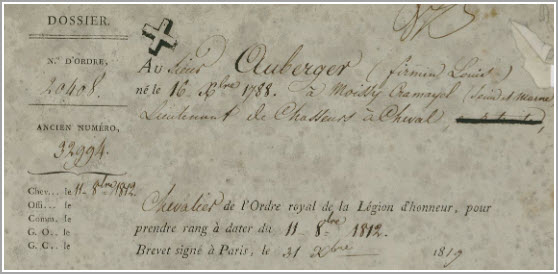 DOSSIER.
N.º D'ORDRE,
20408.
ANCIEN NUMÉRO,
32994.
Chev... le 11 8bre 1812
Offi... le
Comm. le
G. O... le
G. C... le
Au Sieur Auberger (firmin Louis)
né le 16 Xbre 1788. à Moissy Cramayel (Seine et Marne
Lieutenant de Chasseurs à Cheval,
Chevalier de l'Ordre royal de la Légion d'honneur, pour
prendre rang à dater du 11 8bre 1812.
Brevet signé à Paris, le 31 Xbre 1819